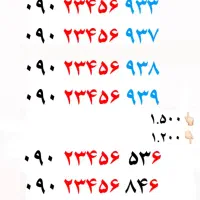 ۰۹۰ ۲۳۴۵۶ ۹۳۳
۰۹۰ ۲۳۴۵۶ ۹۳۷
۰۹۰ ۲۳۴۵۶ ۹۳۸
۰۹۰ ۲۳۴۵۶ ۹۳۹
۱.۵۰۰👆🏻
۱.۲۰۰👇🏻
۰۹۰ ۲۳۴۵۶ ۵۳۶
۰۹۰ ۲۳۴۵۶ ۸۴۶